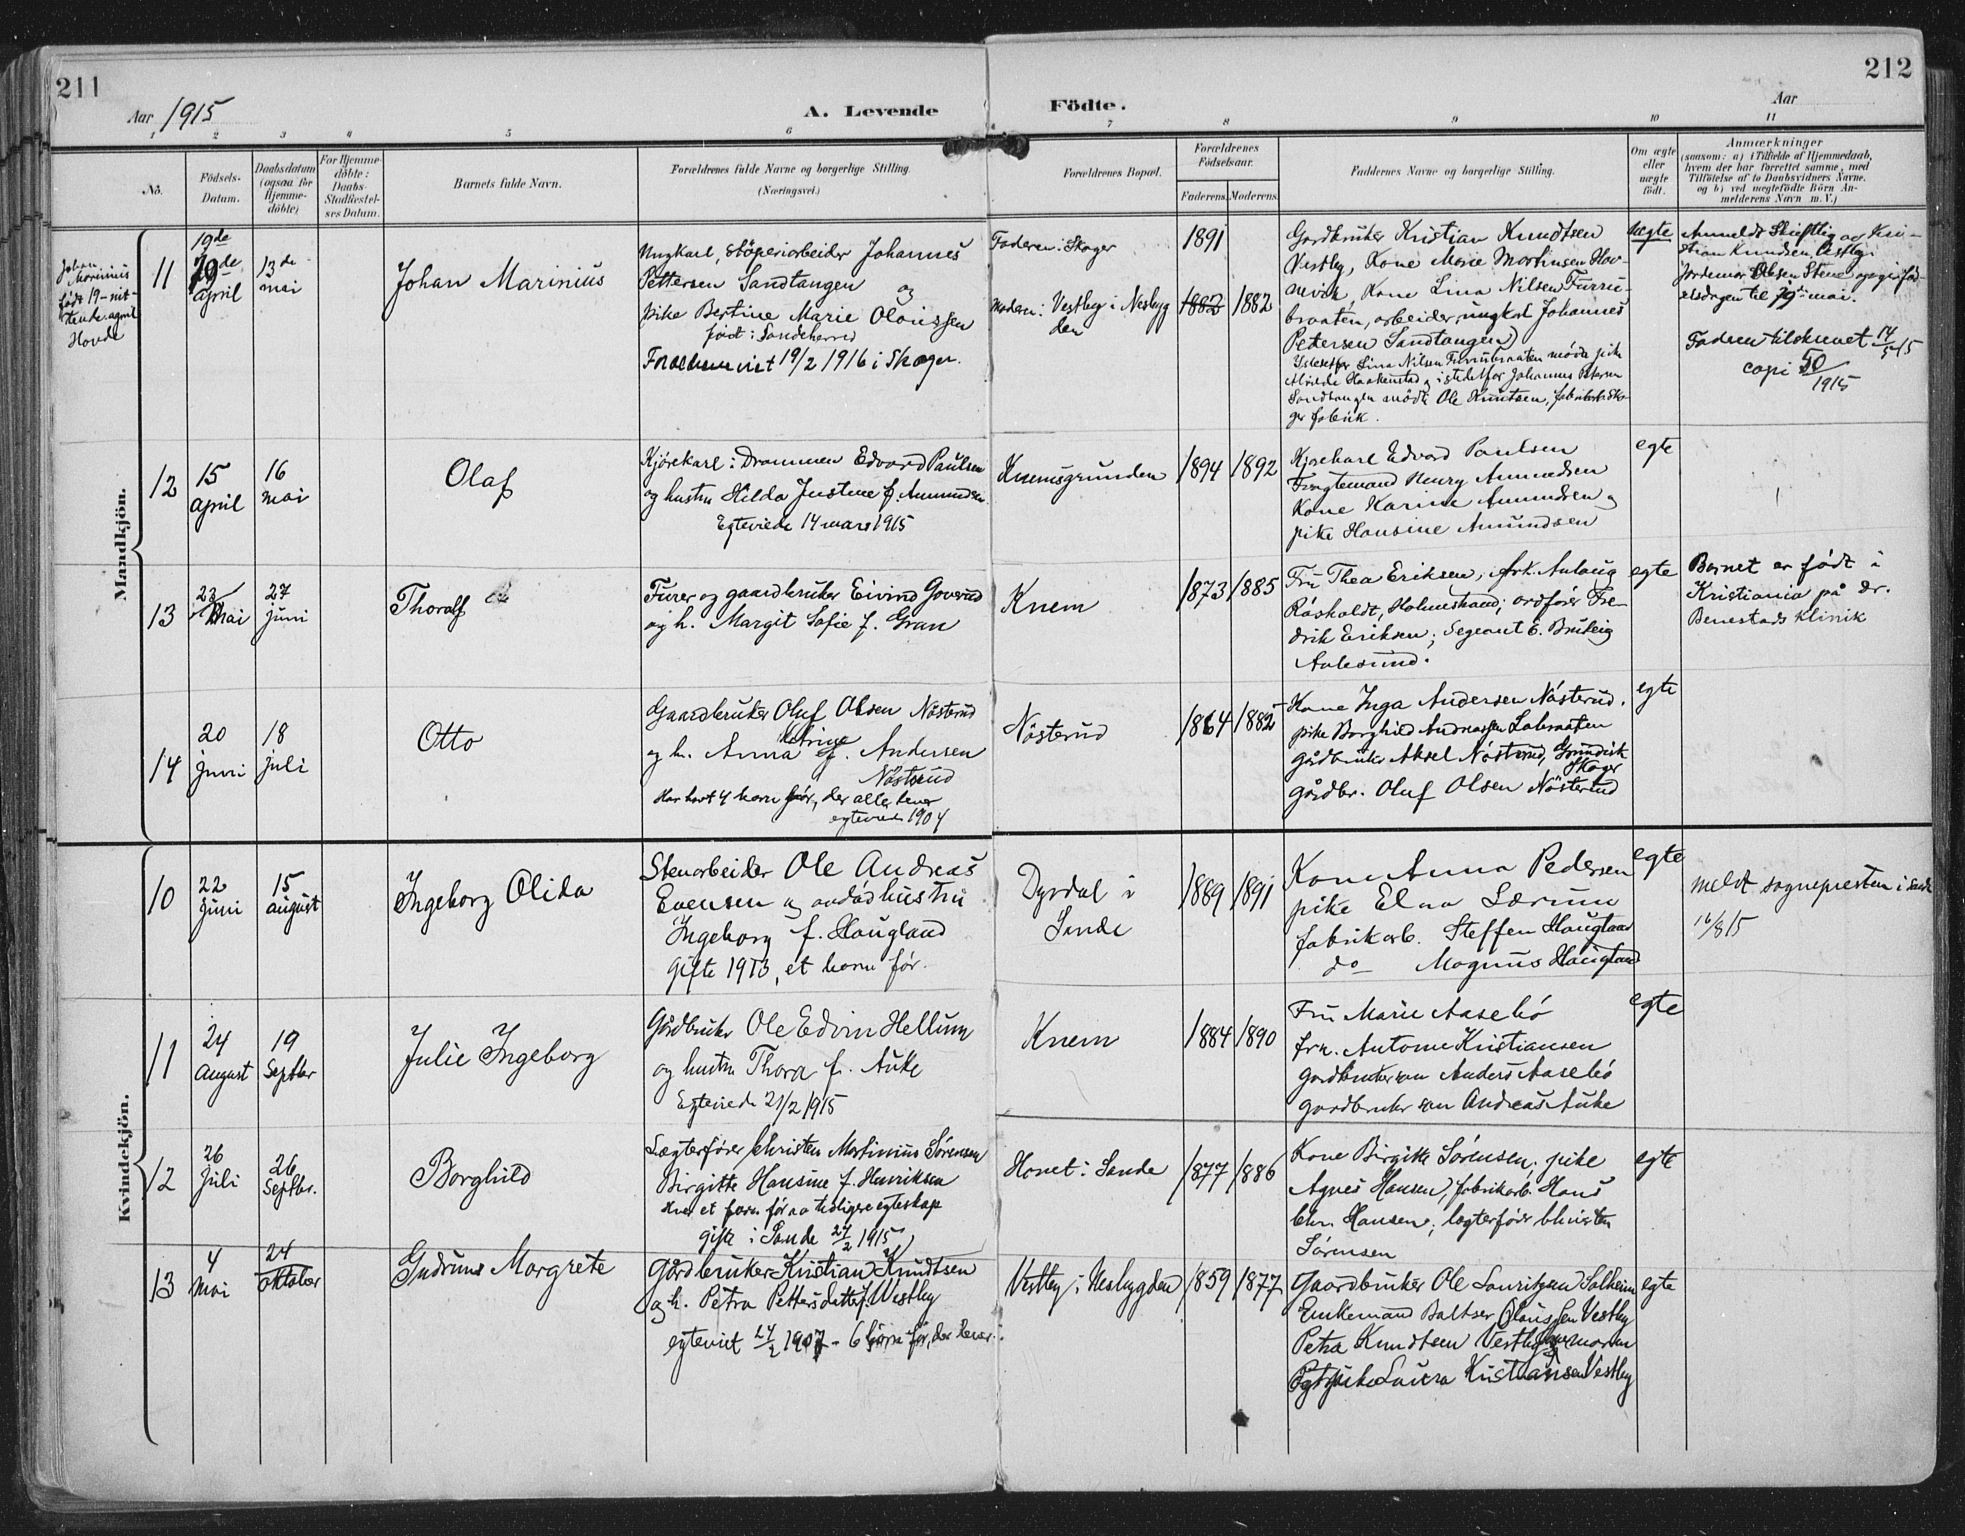 211
212
Aar 1915
A. Levende
Födte.
Aar
1 2 3 4 5 6
6 7 8 9 10 11
No.
Födsels-
Datum.
Daabsdatum
(ogsaa for
Hjemme-
döbte)
For Hjemme-
döbte:
Daabs-
Stadfæstel-
ses Datum.
Barnets fulde Navn.
Forældrenes fulde Navne og borgerlige Stilling.
(Næringsvei.)
Forældrenes Bopæl.
Forældrenes
Födselsaar.
Faderens.
Moderens.
Faddernes Navne og borgerlige Stilling.
Om ægte
eller
uægte
födt.
Anmærkninger
(saasom: a) i Tilfælde af Hjemmedaab,
hvem der har forrettet samme, med
Tilföielse af to Daabsvidners Navne,
og b) ved uægtefödte Börn An-
melderens Navn m. V.)
Mandkjön.
Johan
Marinius
født 19-nit-
tende april
Hovde
11
19de
19de
april
13de
mai
Johan Marinius
Ungkarl, støperiarbeider Johannes
Pettersen Sandtangen
og
pike Bertine Marie Olaussen
født i Sandeherred
Forældrene viet 19/2 1916 i Skoger.
Faderen: Skoger
Moderen: Vestby i Nesbyg
den
1891
1882 1882
Gardbruker Kristian Knudtsen
Vestby, Kone Marie Martinsen Hav-
nevik, Kone Lina Nilsen Furru-
braaten, arbeider, ungkarl Johannes
Pettersen Sandtangen
Istedetfor Lina Nilsen Furrubraaten møder pike
Haakenstad og istedetfor Johannes Petersen
Sandtangen mødte Ole Knutsen, fabrikarb. Sko-
ger fabrik.
uægte
Anmeldt skriftlig av Kri-
stian Knudsen Vestby.
Jordemor Olsen Stene opgir fød-
selsdagen til 19de mai.
Faderen tilskrevet 14/5 15
copi 50/1915
12
15
april
16
mai
Olaf
Kjørekarl i Drammen Edvard Paulsen
og hustru Hilda Justine f. Amundsen
Egteviede 14 mars 1915
Knemsgrunden
1894 1892
Kjørekarl Edvard Paulsen
Henry Amundsen
Kone Karine Amundsen og
pike Hansine Amundsen
egte
13
23
Mai
27
juni
Thoralf
Furer og gaardbruker Eivind Goverud
og h. Margit Sofie f. Gran
Knem
1873 1885
Fru Thea Eriksen, frk. Aslaug
Råsholdt, Holmestrand; ordfører Fre-
drik Eriksen; Segeant E.
Aalesund.
egte
Barnet er født i
Kristiania på dr.
Benestads klinik
14
20
juni
18
juli
Otto
Gaardbruker Oluf Olsen Nøsterud
Katrine
og h. Anna f. Andersen
Nøsterud
Har havt 4 barn før, der alle lever
egteviede 1904
Nøsterud
1864 1882
Kone Inga Andersen Nøsterud.
pike Borghild Andreassen
gårdbruker Aksel Nøsterud,
Skoger
gårdbr. Oluf Olsen Nøsterud
egte
Kvindekjön.
10
22
juni
15
august
Ingeborg Olida
Stenarbeider Ole Andreas
Evensen og avdød hustru
Ingeborg f. Haugland
Gifte 1913, et barn før.
Dyrdal i
Sande
1889 1891
Kone Anna Pedersen
pike Elna Lærum
fabrikarb. Steffen Haugland
do Magnus Haugland
egte
Meldt sognepresten i Sande
16/8 15
11
24
August
19
Septbr
Julie Ingeborg
Gårdbruker Ole Edvin Hellum
og hustru Thora f. Auke
Egteviede 21/2 1915
Knem
1884 1890
Fru Marie Aasebø
frk. Antone Kristiansen
gardbrukersøn Anders Aasebø
gardbruker søn Andreas Auke
egte
12
26
Juli
26
Septbr.
Borghild
Lægterfører Christen Martinius Sørensen
Birgitte Hansine f. Henriksen
Hver et barn før av tidligere egteskap
gifte i Sande 27/2 1915
Hanet i Sande
1877 1886
Kone Birgitte Sørensen; pike
Agnes Hansen, fabrikarb. Hans
Chr. Hansen; lægterfører Christen
Sørensen
egte
13
4
Mai
24
oktober
Gudrun Margrete
Gårdbruker Kristian Knudtsen
og h. Petra Pettersdatter f. Vestby
egteviet 24/2 1907 - 6 børn før, der lever.
Vestby i Nesbygden
1859 1877
Gaardbruker Ole Lauritsen Solheim
Enkemand Baltser Olaussen Vestby
Petra Knudtsen Vestby moren
pike Laura Kristiansen Vestby
egte